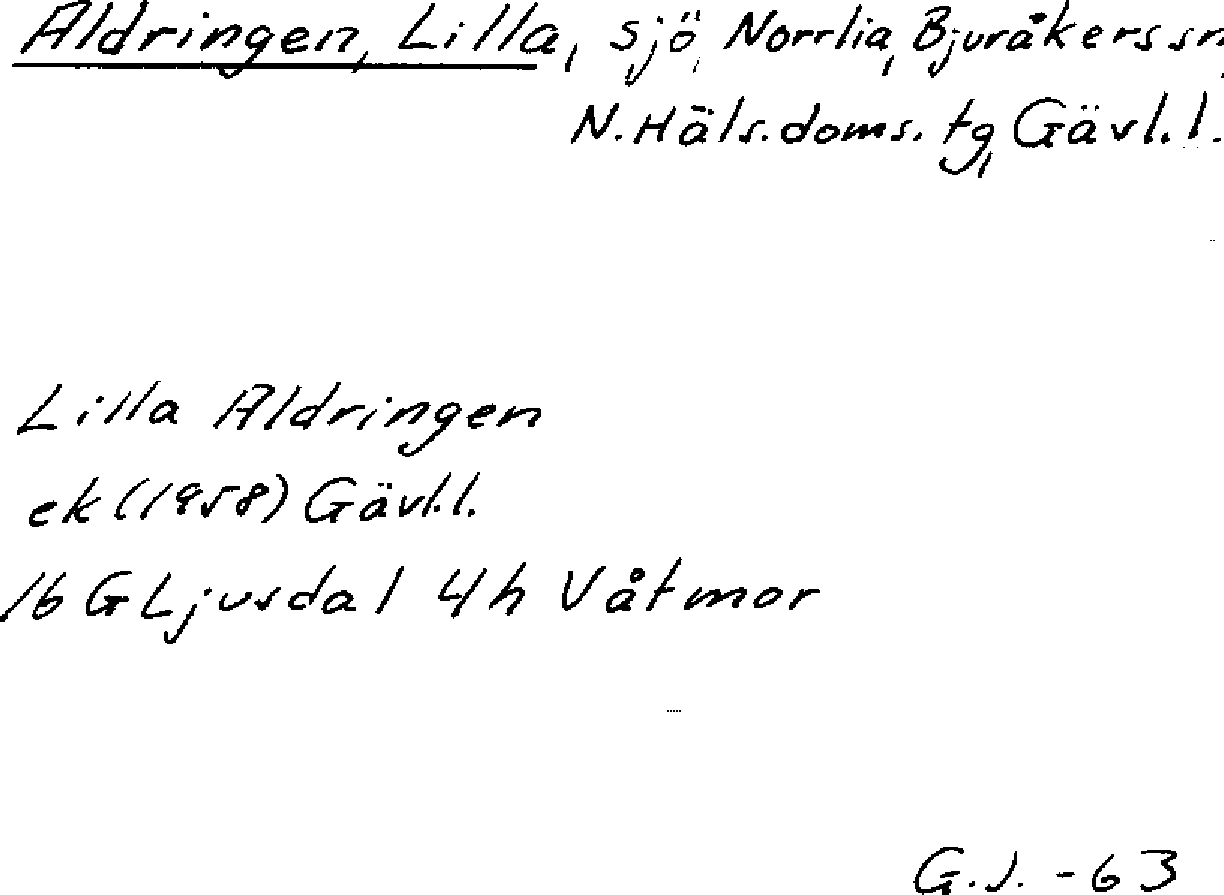 Aldringen, Lilla, sjö, Norrlia, Bjuråkers sn,
N. Häls. doms. tg, Gävl. l.
Lilla Aldringen
ek (1958) Gävl. l.
16 G Ljusdal 4 h Våtmor
G.J. -63